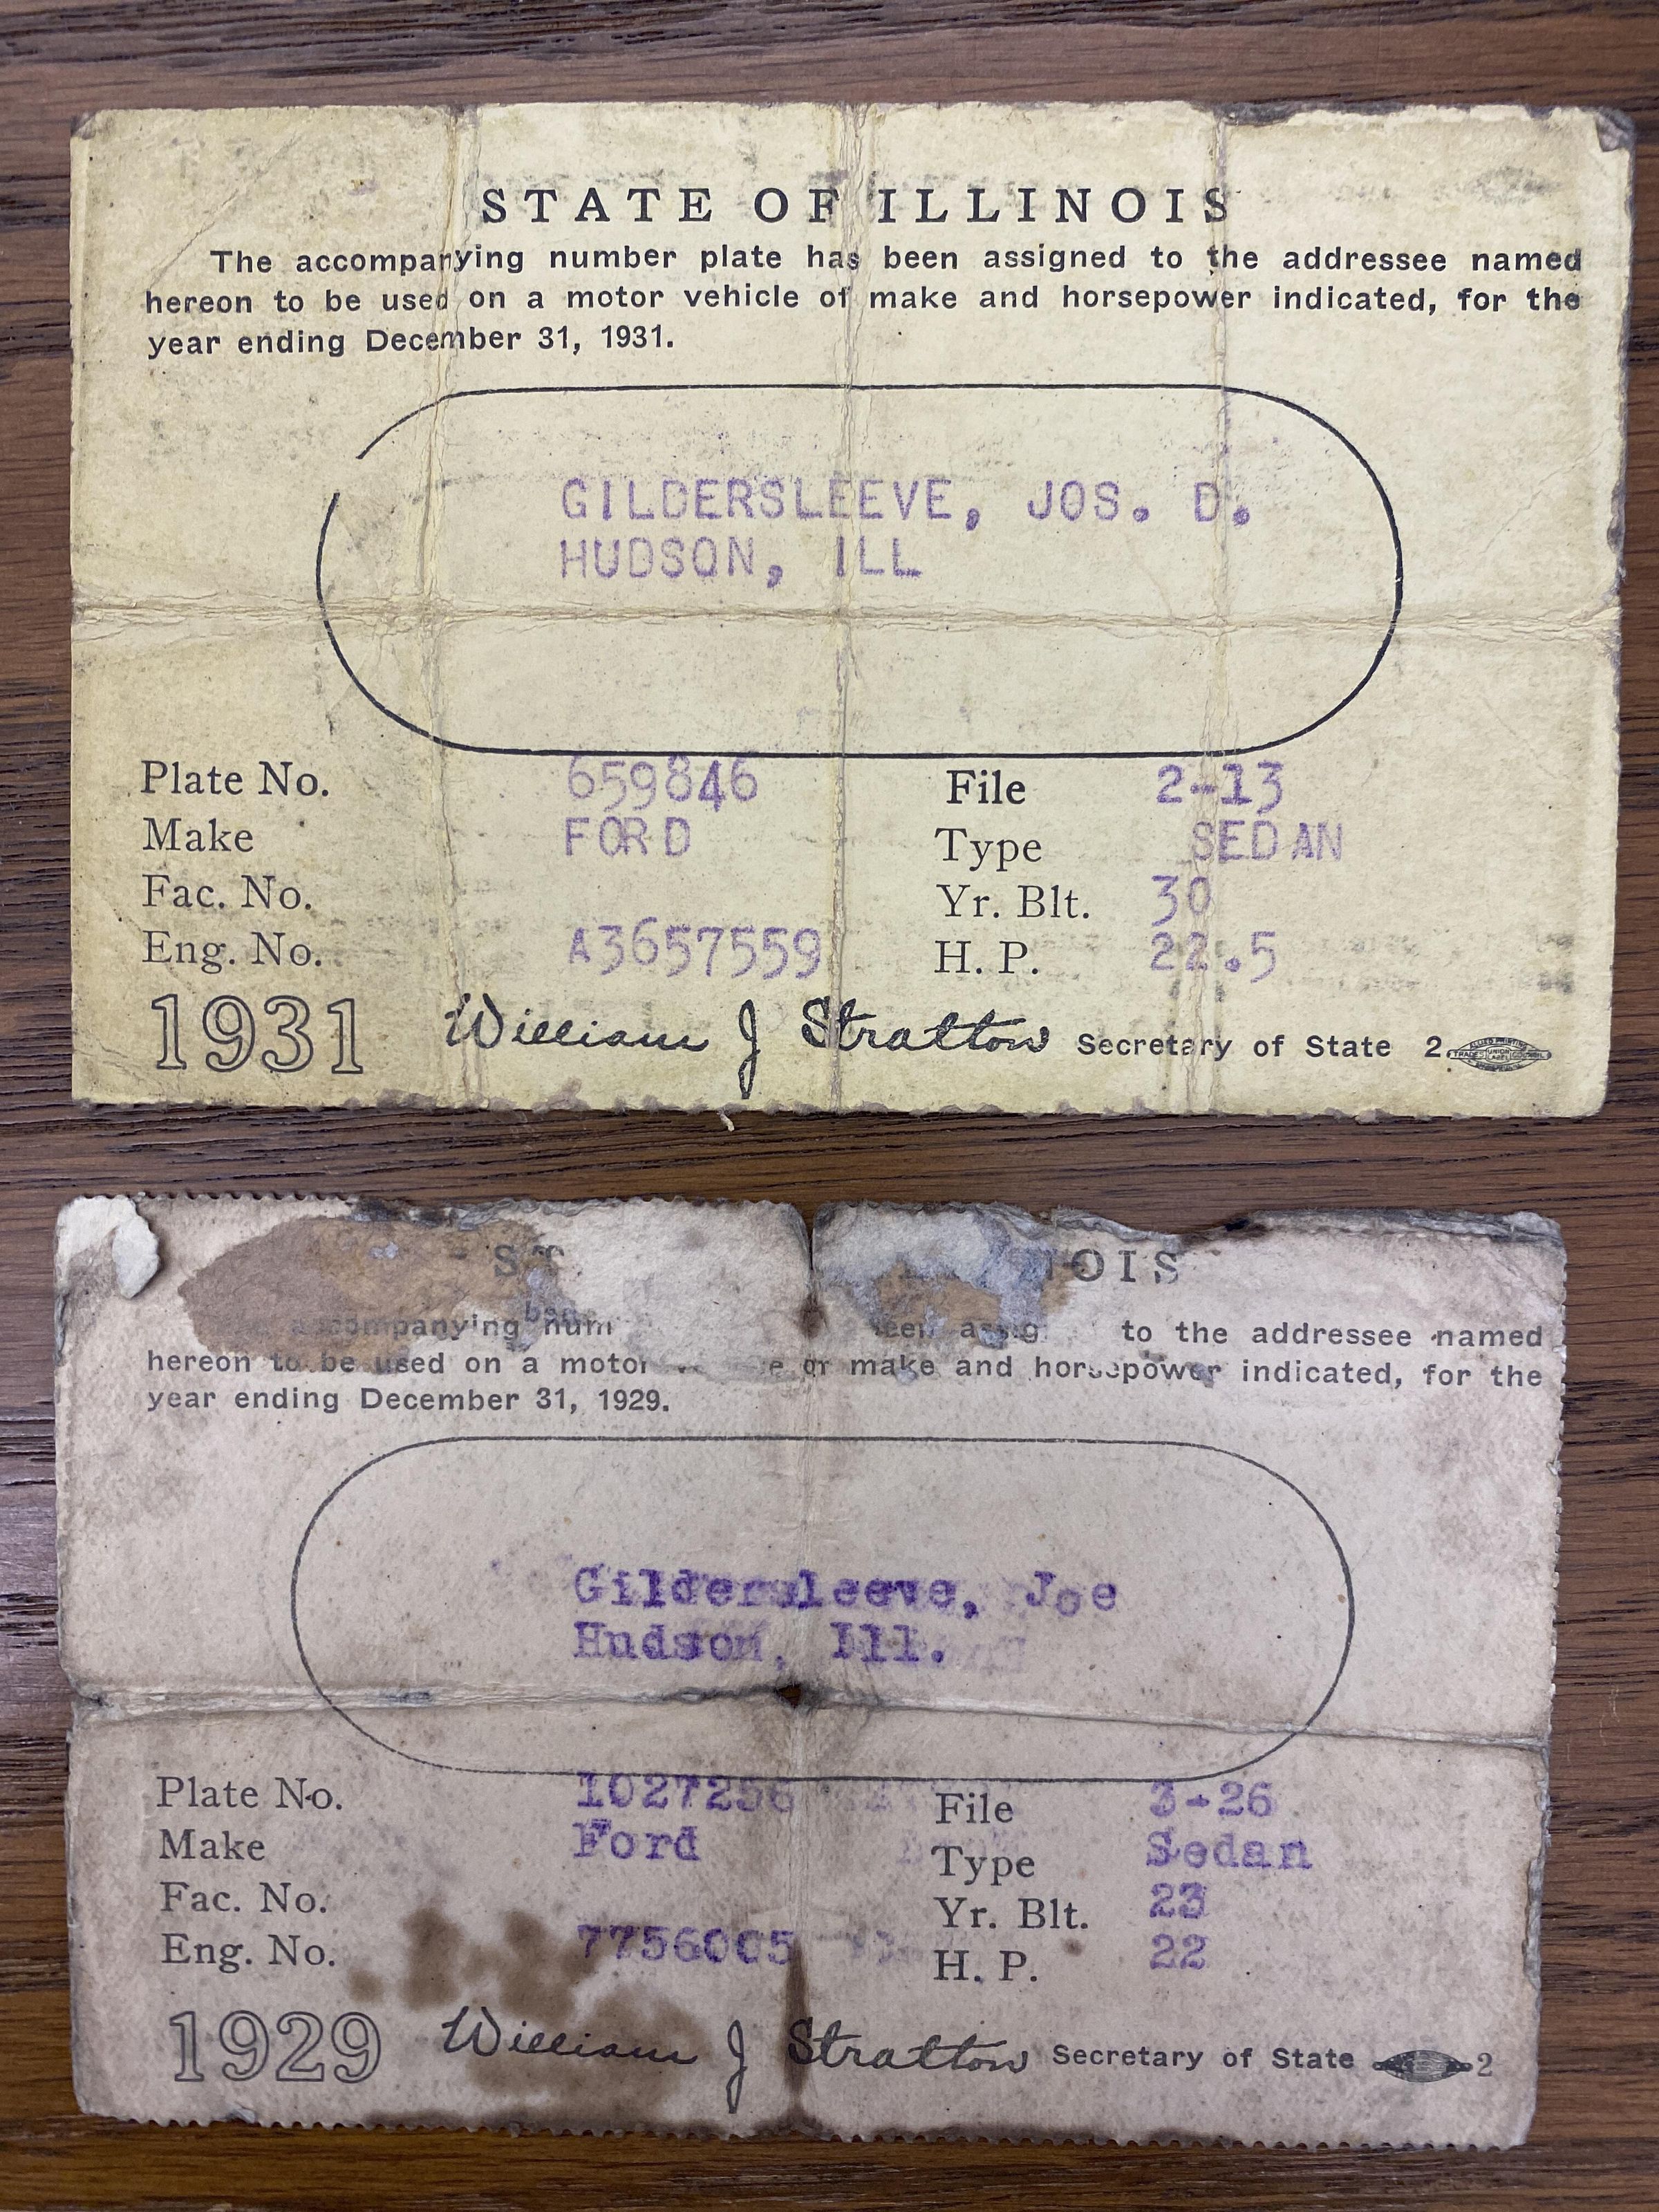 STATE OF ILLINOIS
The accompanying number plate has been assigned to the addressee named
hereon to be used on a motor vehicle of make and horsepower indicated, for the
year ending December 31, 1931.
GILDERSLEEVE, JOS. D.
HUDSON, ILL
Plate No. 659846 File 2-13
Make FORD Type SEDAN
Fac. No. Yr. Blt. 30
Eng. No. A3657559 H. P. 22.5
1931 William J Stratton Secretary of State 2
ST OIS
accompanying num been assig to the addressee named
hereon to be used on a motor make and horsepower indicated, for the
year ending December 31, 1929.
Gildersleeve, Joe
Hudson, Ill.
Plate No. 1027256 File 3-26
Make Ford Type Sedan
Fac. No. Yr. Blt. 23
Eng. No. 7756005 H. P. 22
1929 William J Stratton Secretary of State 2